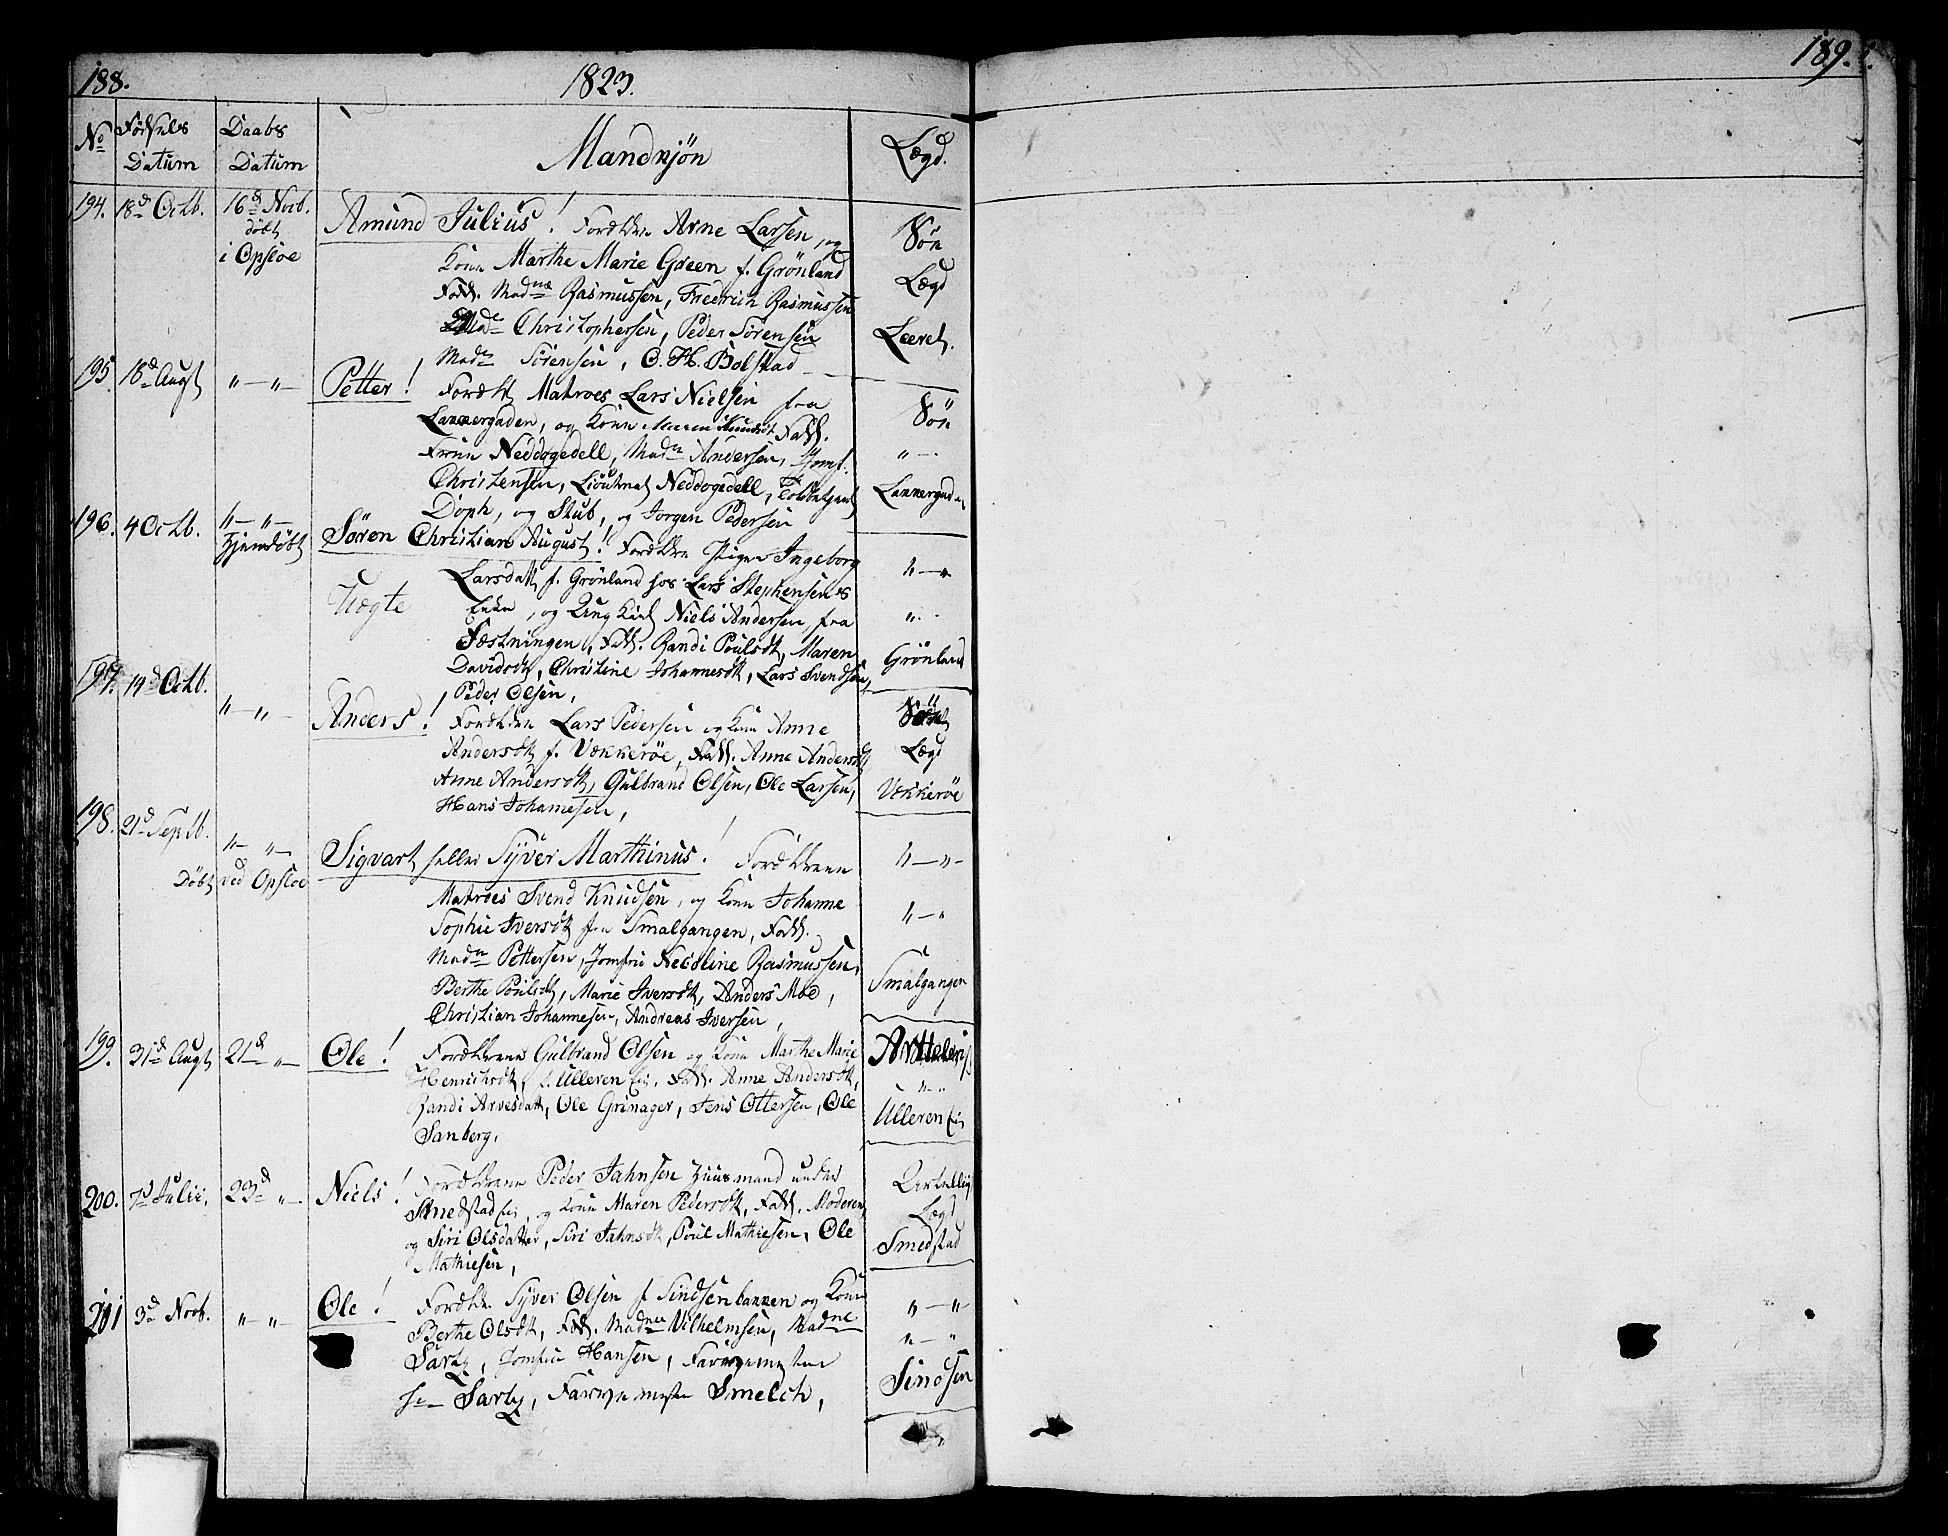 188.
1823.
189.
No Fødsels Datum Daabs Datum Mandkjön Lægd.
194. 18d Octb. 16d Novb. döbt i Opsloe
Amund Julius! Forældre Arne Larsen, og
Kone Marthe Marie Green f. Grönland
Fadd. Madme Rasmussen, Fredrich Rasmussen
Christophersen, Peder Sörensen
Madm Sörensen, C. H. Bolstad
Sön Lægd Leeret.
195. 18d Augt "—"—
Petter! Foræld. Matroes Lars Nielsen fra
Lakkergaden, og Kone Maren Fadd.
Fruu Neddogedell, Madm Andersen, Jomf.
Christensen, Lieutnat Neddogedell,
Doph, og Stub, og Jorgen Pedersen
Sön "—. Lakkergaden
196. 4 Octb. "—"— Hjemdöbt
Søren Christian August! Forældre Pigen Ingeborg
Larsdatt f. Grönland hos Lars Stephensens
Enke, og Ung Karl Niels Andersen, fra
Fæstningen, Fadd. Randi Poulsdt, Maren
Davidsdt, Christine Johannesdt, Lars Svendsen,
Peder Olsen,
Uægte
"—"
"..
Grönland
197. 19d Octb. "—"—
Anders! Forældre Lars Pedersen og Kone Anne
Andersdt f. Vækkerøe, Fadd. Anne Andersdt
Anne Andersdt, Gulbrand Olsen, Ole Larsen,
Hans Johannesen,
Lægd
Vækkerøe
198. 21d Septb. "—"— Döbt ved Opsloe
Sigvart heller Syver Marthinus! Forældrene
Matroes Svend Knudsen, og Kone Johanne
Sophie Iversdt fra Smalgangen, Fadd.
Madm Pettersen, Jomfru Nicoline Rasmussen,
Berthe Poulsdt, Marie Iversdt, Anders Moe,
Christian Johannesen, Andreas Iversen,
"—"—
"—"
Smalgangen
199. 31d Augt 21d "—
Ole! Forældrene Gulbrand Olsen og Kone Marthe Marie
Henrichsdt, f. Ulleren Eie. Fadd. Anne Andersdt,
Randi Arvesdatt, Ole Grinager, Jens Ottersen, Ole
Sanberg,
"..
Ulleren Eie
200. 7d Julii, 23d "—
Niels! Forældrene Peder Jahnsen Huusmand under
Smedstad Eie, og Kone Maren Pedersdt, Fadd. Moderen,
og Siri Olsdatter, Siri Jahnsdt, Poul Mathiesen, Ole
Mathiesen,
Lægd
Smedstad
201 3d Novb. "—"—
Ole! Forældre Syver Olsen f. Sindsenbakken og Kone
Berthe Olsdt, Fad. Madme Vilhelmsen, Madme
Sarby, Jomfru Hansen, Farvemester
Sarby, Farvemester Smelch,
"—"—
"—"
Sindsen